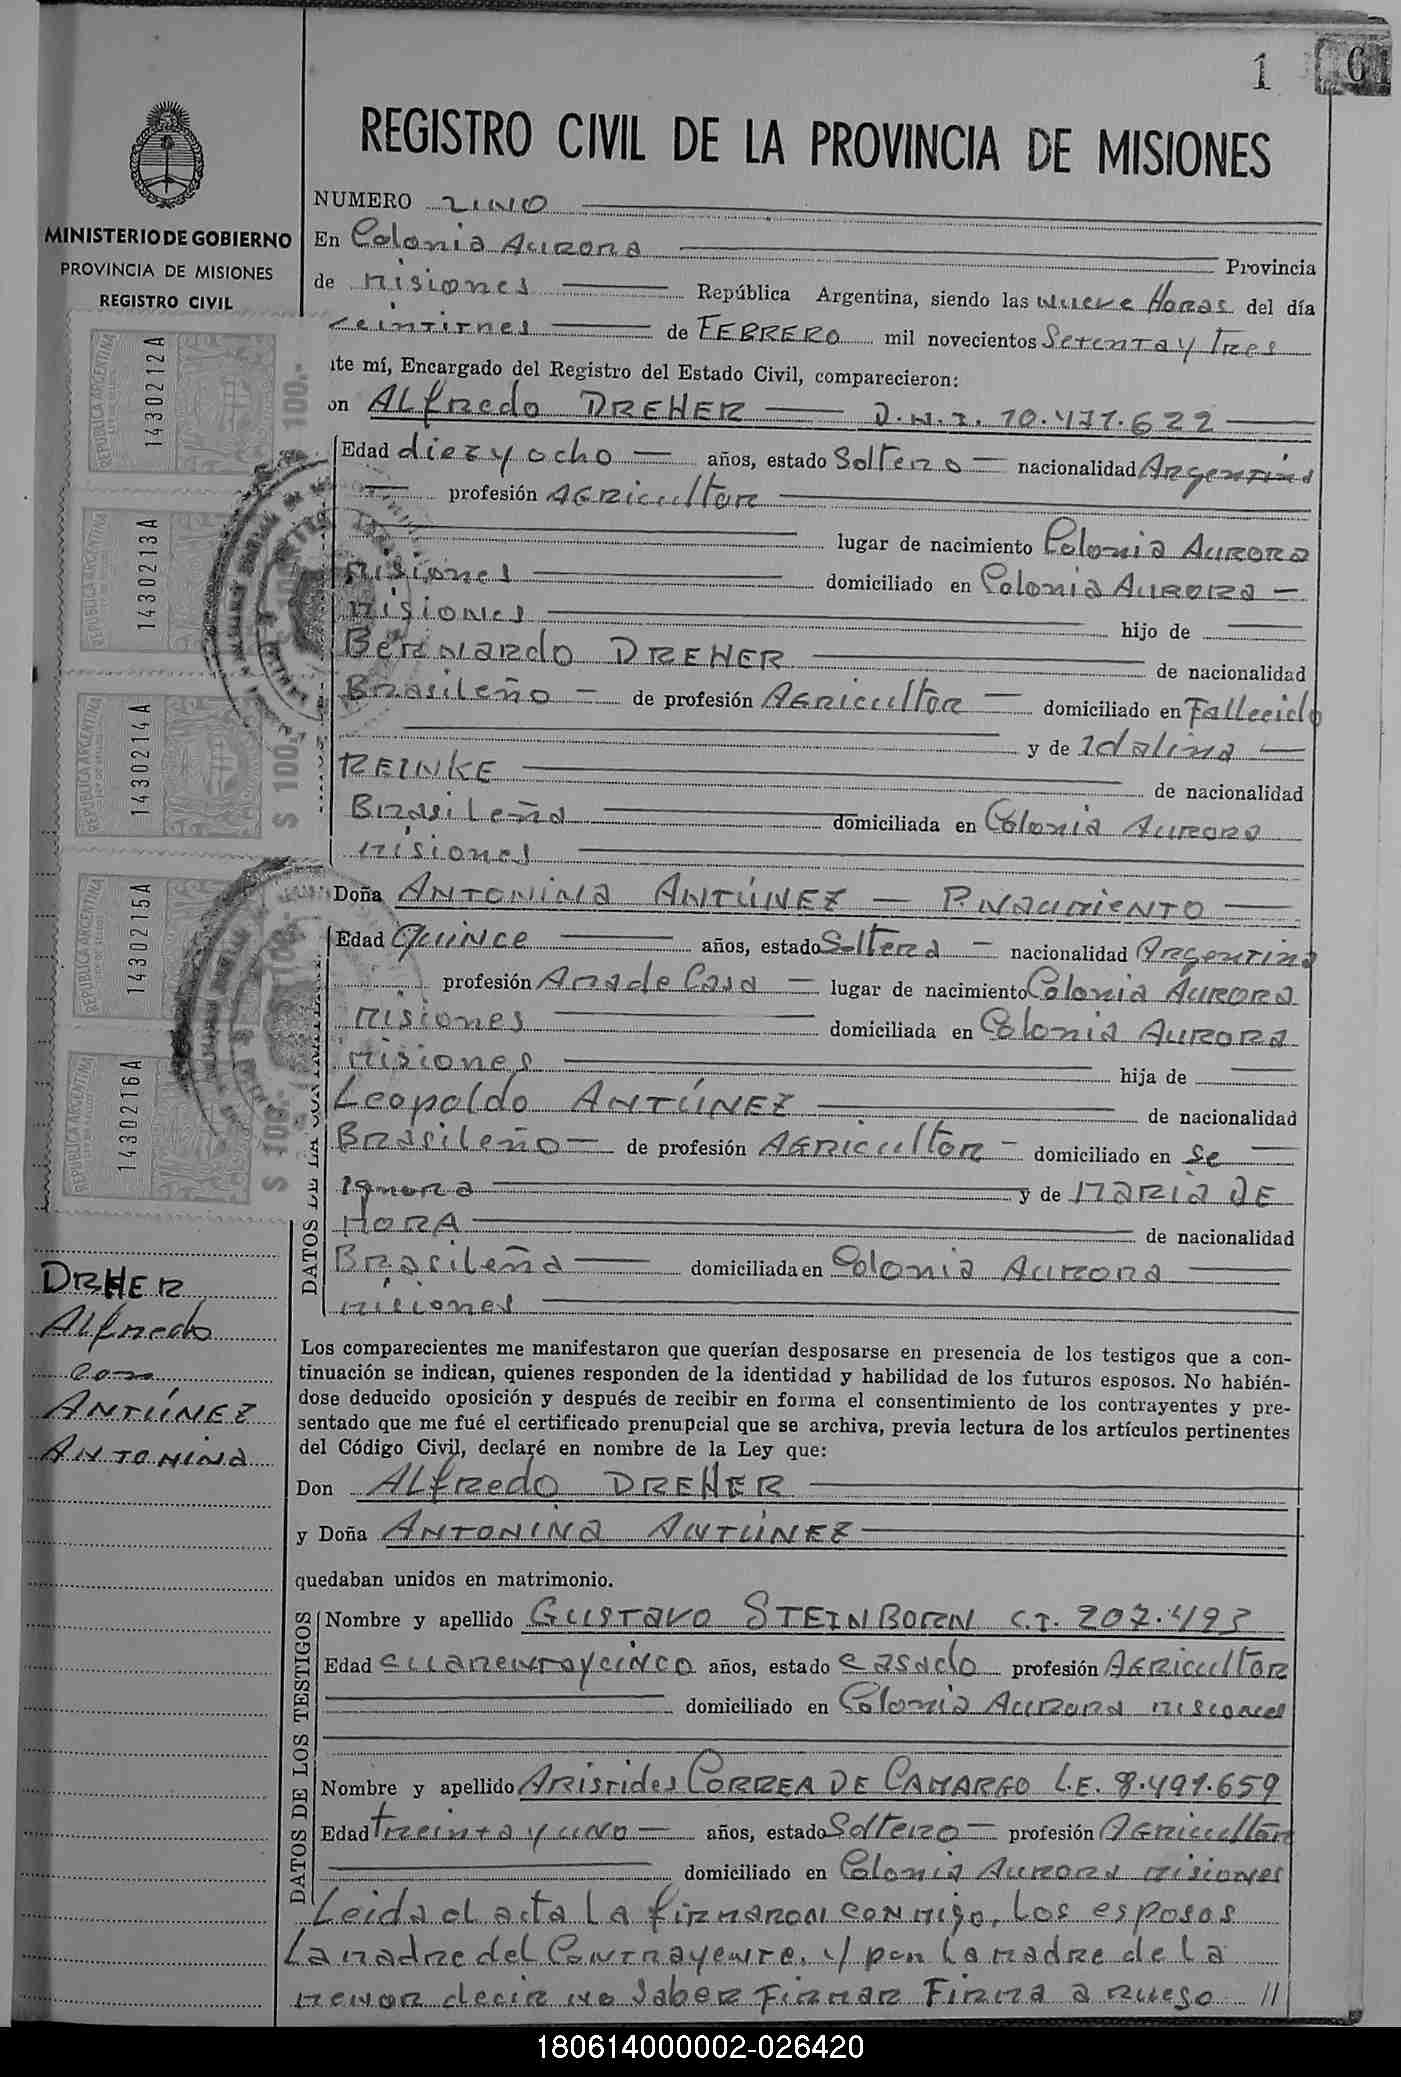 1
REGISTRO CIVIL DE LA PROVINCIA DE MISIONES
MINISTERIO DE GOBIERNO
PROVINCIA DE MISIONES
REGISTRO CIVIL
NUMERO UNO
En Colonia Aurora Provincia
de Misiones República Argentina, siendo las nueve Horas del día
de FEBRERO mil novecientos Setenta y Tres
te mí, Encargado del Registro del Estado Civil, comparecieron:
on Alfredo DREHER — D.N.I. 10.471.622
Edad diez y ocho — años, estado Soltero — nacionalidad Argentina
profesión Agricultor
lugar de nacimiento Colonia Aurora
Misiones domiciliado en Colonia Aurora —
Misiones hijo de
Bernardo DREHER de nacionalidad
Brasileño — de profesión Agricultor — domiciliado en Fallecido
y de Idalina —
REINKE de nacionalidad
Brasileña domiciliada en Colonia Aurora
Misiones
Doña Antonina ANTÚNEZ — P. Nacimiento
Edad Quince años, estado Soltera — nacionalidad Argentina
profesión Ama de Casa — lugar de nacimiento Colonia Aurora
Misiones domiciliada en Colonia Aurora
Misiones hija de
Leopoldo ANTÚNEZ de nacionalidad
Brasileño — de profesión Agricultor — domiciliado en se
Ignora y de MARIA DE
MORA de nacionalidad
Brasileña domiciliada en Colonia Aurora
Misiones
Los comparecientes me manifestaron que querían desposarse en presencia de los testigos que a con-
tinuación se indican, quienes responden de la identidad y habilidad de los futuros esposos. No habién-
dose deducido oposición y después de recibir en forma el consentimiento de los contrayentes y pre-
sentado que me fué el certificado prenupcial que se archiva, previa lectura de los artículos pertinentes
del Código Civil, declaré en nombre de la Ley que:
Don Alfredo DREHER
y Doña Antonina ANTÚNEZ
quedaban unidos en matrimonio.
DATOS DE LOS TESTIGOS
Nombre y apellido Gustavo STEINBORN C.I. 207.493
Edad cuarenta y cinco años, estado casado profesión Agricultor
domiciliado en Colonia Aurora Misiones
Nombre y apellido Aristides CORREA DE CAMARGO L.E. 8.491.659
Edad treinta y uno — años, estado Soltero — profesión Agricultor
domiciliado en Colonia Aurora Misiones
Leida el acta La firmaron conmigo, Los esposos
La madre del Contrayente, y por La madre de La
menor decir no Saber Firmar Firma a ruego //
DREHER
Alfredo
con
ANTÚNEZ
ANTONINA
REPUBLICA ARGENTINA
1430212A
$ 100.-
REPUBLICA ARGENTINA
1430213A
REPUBLICA ARGENTINA
1430214A
$ 100.-
REPUBLICA ARGENTINA
1430215A
REPUBLICA ARGENTINA
1430216A
$ 100.-
180614000002-026420